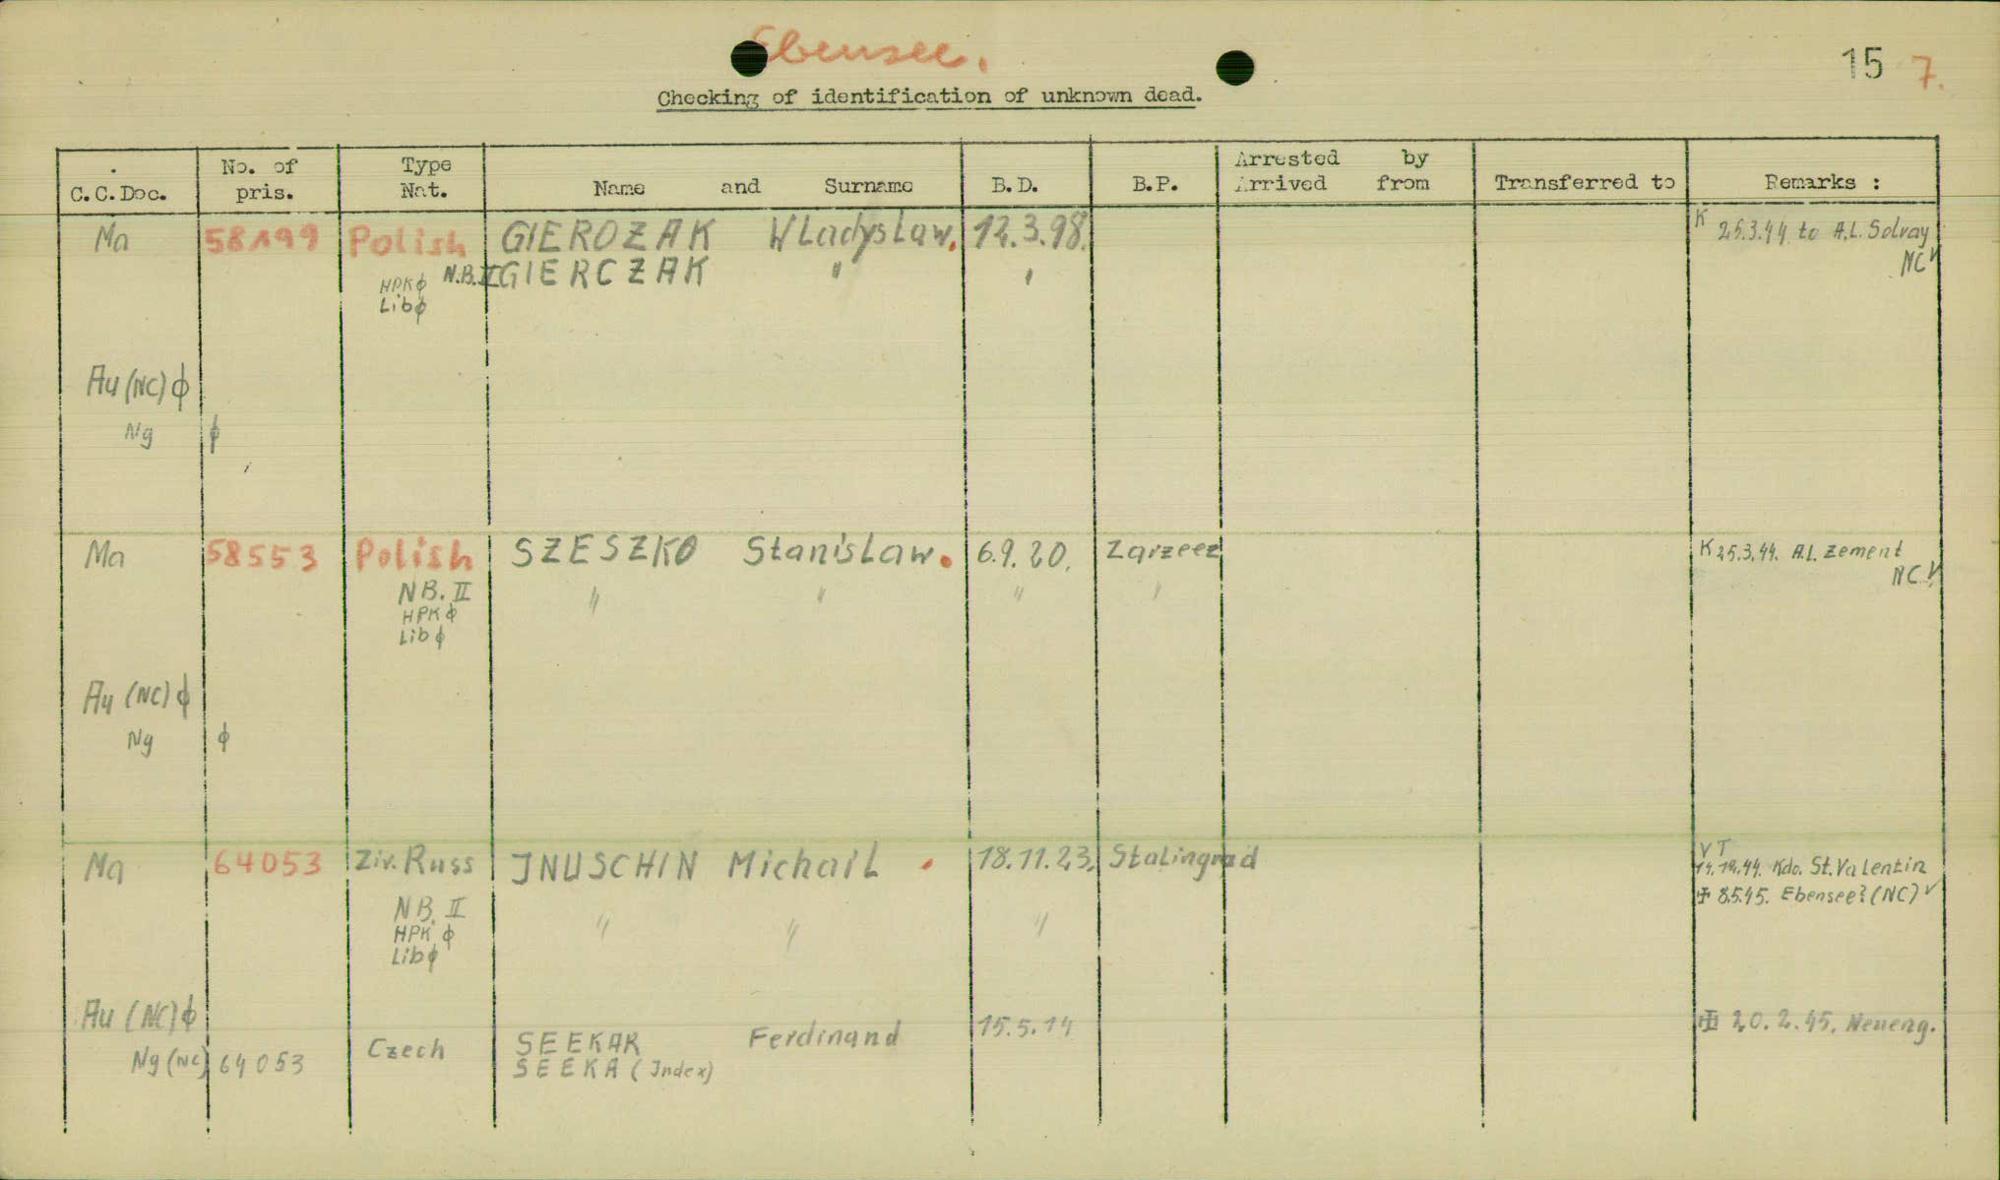 Ebensee.
15 7.
Checking of identification of unknown dead.
C.C.Doc. No. of pris. Type Nat. Name and Surname B.D. B.P. Arrested by Arrived from Transferred to Remarks :
Ma 58199 Polish GIEROZAK WLadysLaw. 12.3.98. K 25.3.44 to A.L. Solvay
N.B. II GIERCZAK " " NC V
HPK ϕ
Lib ϕ
Au (NC) ϕ
Ng ϕ
Ma 58553 Polish SZESZKO StanisLaw. 6.9.20. Zarzeez K 25.3.44. A.L. Zement
NB. II " " " " NC V
HPK ϕ
Lib ϕ
Au (NC) ϕ
Ng ϕ
Ma 64053 Ziv. Russ JNUSCHIN MichaiL . 18.11.23. Stalingrad VT
14.12.44. Kdo. St. VaLentin
NB. II " " " ✠ 8.5.45. Ebensee? (NC) V
HPK ϕ
Lib ϕ
Au (NC) ϕ
Ng (NC) 64053 Czech SEEKAR Ferdinand 15.5.14 ✠ 20.2.45. Neueng.
SEEKA (Index)